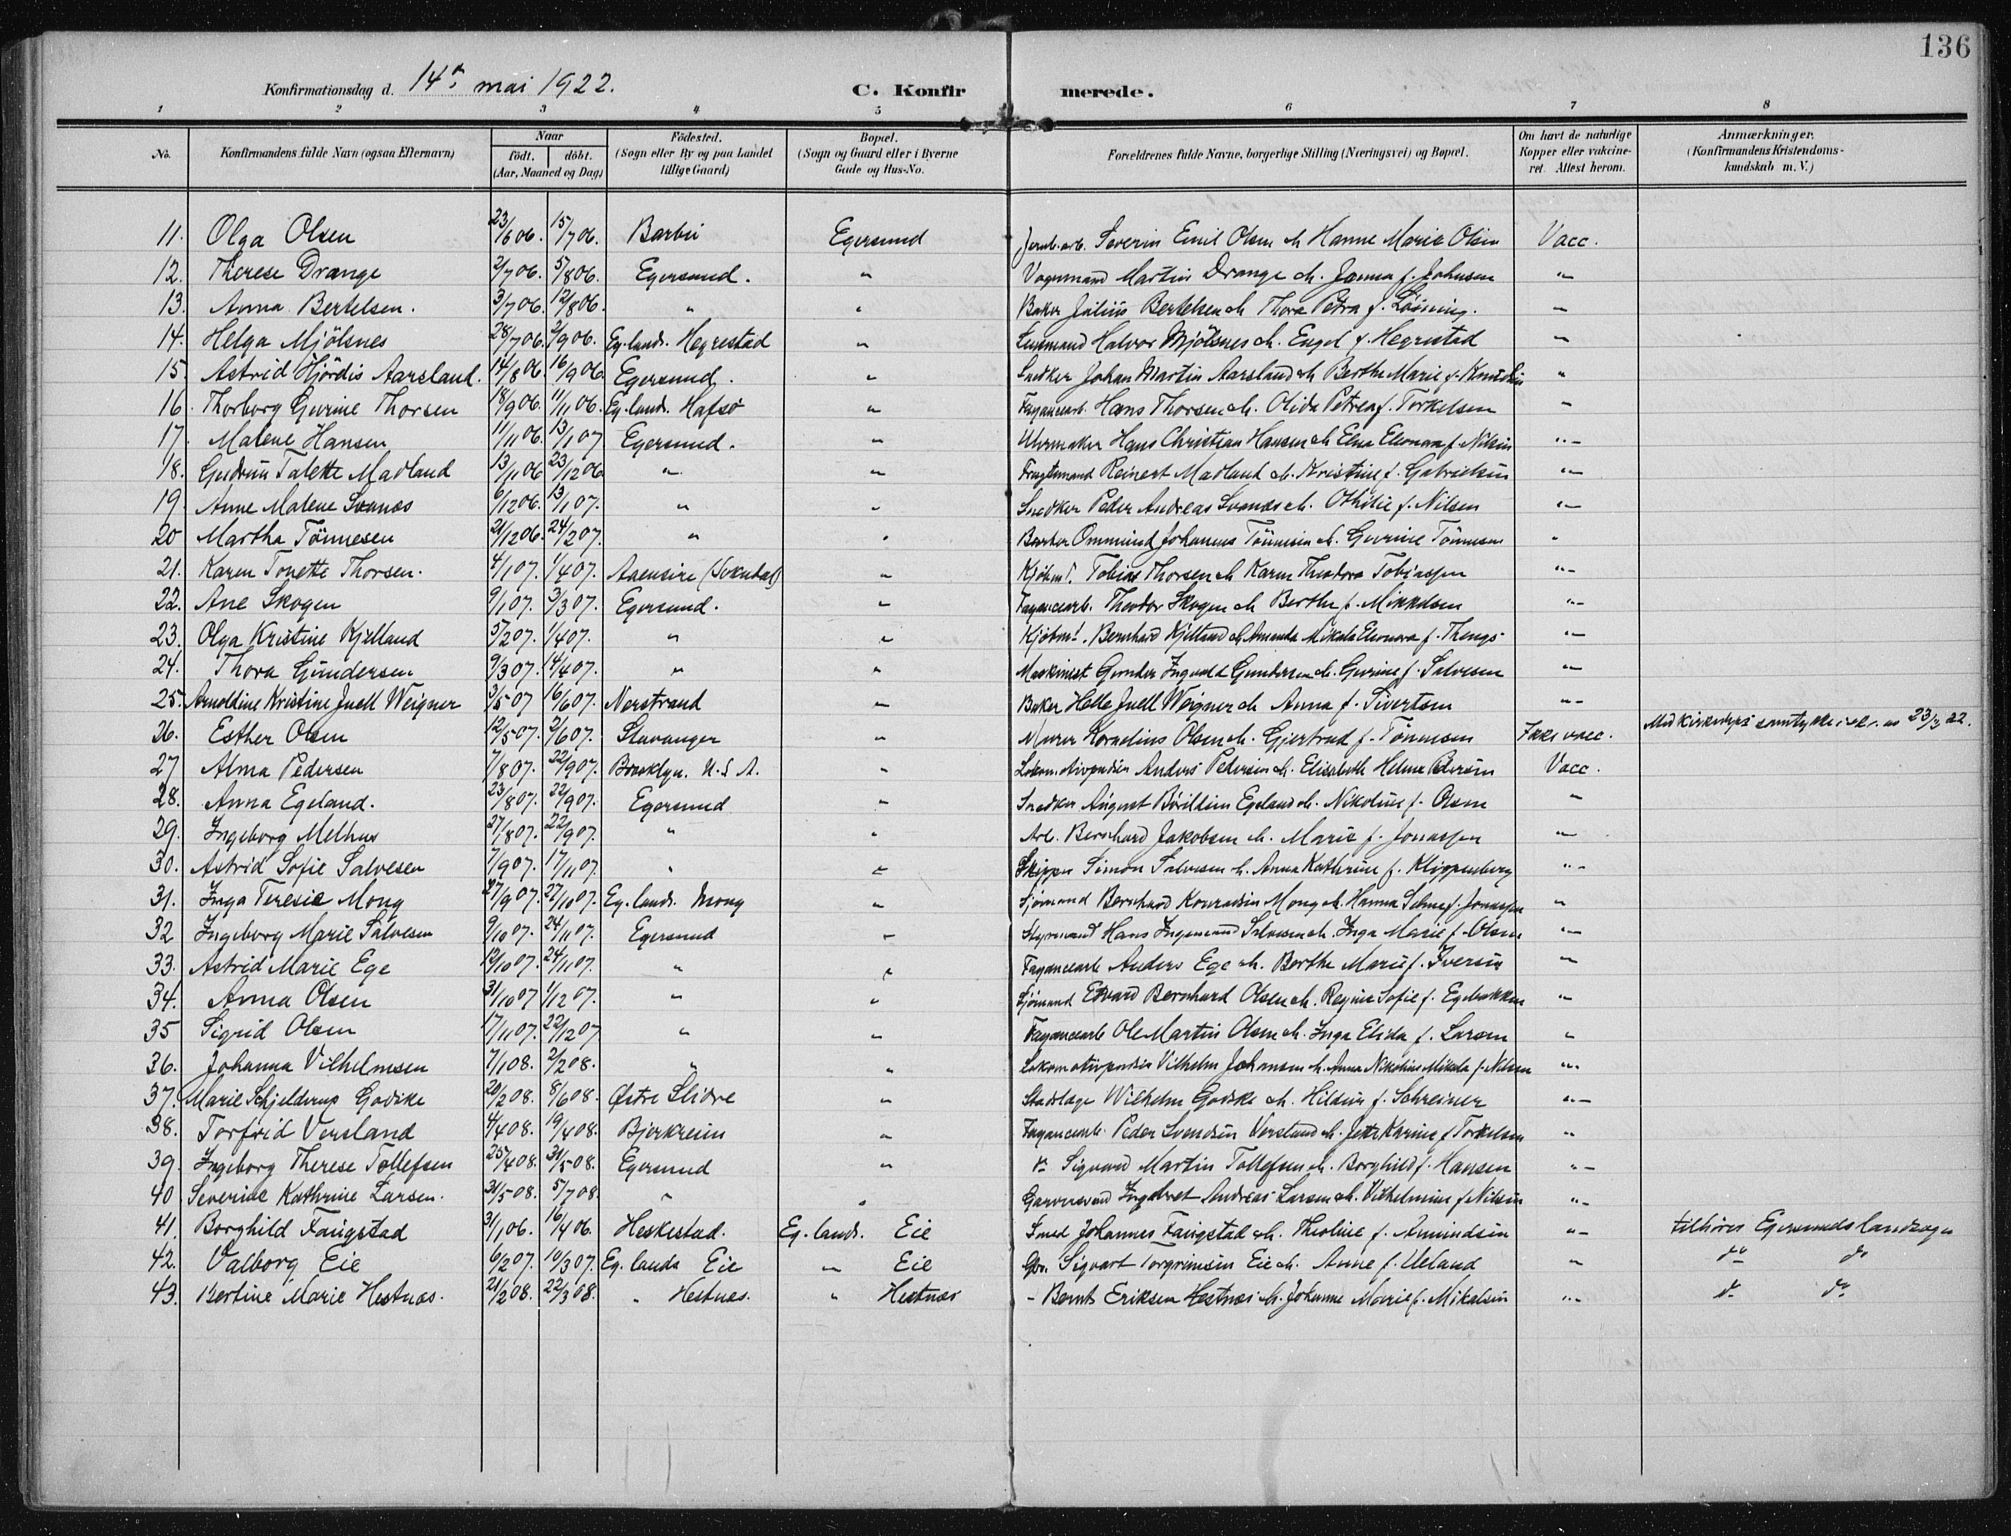 136
Konfirmationsdag d. 14de mai 1922. C. Konfirmerede.
1 2 3 4 5 6 7 8
No. Konfirmandens fulde Navn (ogsaa Efternavn) Naar födt. döbt. (Aar, Maaned og Dag) Födested. (Sogn eller By og paa Landet tillige Gaard) Bopæl. (Sogn og Gaard eller i Byerne Gade og Hus-No. Forældrenes fulde Navne, borgerlige Stilling (Næringsvei) og Bopæl. Om havt de naturlige Kopper eller vakcineret. Attest herom. Anmærkninger. (Konfirmandens Kristendomskundskab m. V.)
11. Olga Olsen 23/6 06. 15/7 06. Barbu Egersund Jernb.arb. Severin Emil Olsen & h. Hanne Marie Olsen Vacc.
12. Therese Drange 2/7 06. 5/8 06. Egersund. " Vognmand Martin Drange & h. Janna f. Johnsen "
13. Anna Bertelsen. 3/7 06. 12/8 06. " " Baker Julius Bertelsen & h. Thora Petra f. Lönning. "
14. Helga Mjölsnes 28/7 06. 2/9 06. Eg. lands. Hegrestad " Halvor Mjölsnes & h. Engel f. Hegrestad "
15. Astrid Hjördis Aarsland. 14/8 06. 16/9 06. Egersund. " Snedker Johan Martin Aarsland & h. Berthe Marie f. Knudsen "
16. Thorborg Gurine Thorsen 18/9 06. 11/11 06. Eg. lands. Hafsö " Fayancearb. Hans Thorsen & h. Olida Petrea f. Torkelsen "
17. Malene Hansen 11/11 06. 13/1 07 Egersund. " Uhrmaker Hans Christian Hansen & h. Elna Eleonora f. Nilsen "
18. Gudrun Talette Madland 13/11 06 23/12 06 " " Fragtemand Reinert Madland & h. Kristine f. Gabrielsen "
19. Anne Malene Svanæs 6/12 06. 13/1 07. " " Snedker Peder Andreas Svanæs & h. Othilie f. Nilsen "
20 Martha Tönnesen 21/12 06. 24/2 07. " " Barber Ommund Johannes Tönnesen & h. Gurine Tönnesen "
21. Karen Tonette Thorsen. 4/1 07. 1/4 07. Aaensire (Sokndal) " Kjöbm. Tobias Thorsen & h. Karen Theodora Tobiassen "
22. Ane Skogen 9/1 07. 3/3 07. Egersund. " Fayancearb. Theodor Skogen & h. Berthe f. Mikkelsen "
23. Olga Kristine Kjelland 5/2 07. 1/4 07. " " Kjöbm. Bernhard Kjelland & h. Amanda Mikala Eleonora f. Thengs "
24. Thora Gundersen 9/3 07. 14/4 07. " " Maskinist Gunder Ingvald Gundersen & h. Gurine f. Salvesen "
25. Arnoldine Kristine Juell Weigner 3/5 07 16/6 07. Nerstrand " Baker Helle Juell Weigner & h. Anna f. Sivertsen "
26. Esther Olsen 12/5 07. 2/6 07. Stavanger " Murer Kornelius Olsen & h. Gjertrud f. Tönnesen Ikke vacc. Med kirkedeps samtykke 23/3 22.
27 Alma Pedersen 7/8 07. 22/9 07. Brooklyn. U.S.A. " Lokomotivpudser Anders Pedersen & h. Elisabeth Helene Pedersen Vacc.
28. Anna Egeland. 23/8 07. 22/9 07. Egersund " Snedker August Egeland & h. Nikoline f. Olsen "
29. Ingeborg Melhus 27/8 07. 22/9 07. " " Arb. Bernhard Jakobsen & h. Marie f. Jonassen "
30. Astrid Sofie Salvesen 7/9 07. 17/11 07. " " Skipper Simon Salvesen & h. Anna Kathrine f. Kluppenberg "
31. Inga Teresie Mong 27/9 07. 27/10 07. Eg. lands. Mong " Sjömand Bernhard Konradsen Mong & h. Hanna Selma f. Jonassen "
32 Ingeborg Marie Salvesen 9/10 07. 24/11 07. Egersund " Styrmand Hans Ingemand Salvesen & h. Inga Marie f. Olsen "
33. Astrid Marie Ege 12/10 07. 24/11 07. " " Fayancearb Anders Ege & h. Berthe Marie f. Iversen "
34. Anna Olsen 31/10 07 1/12 07. " " Sjömand Edvard Bernhard Olsen & h. Regine Sofie f. Egebakken "
35 Sigrid Olsen 17/11 07. 22/12 07 " " Fayancearb Ole Martin Olsen & h. Inga Elida f. Larsen "
36. Johanna Vilhelmsen 7/1 08. 2/2 08. " " Lokomotivpudser Vilhelm Johansen & h. Anna Nikoline Mikala f. Nilsen "
37. Marie Schjelderup Godske 20/2 08. 8/6 08. Østre Slidre " Stadslæge Wilhelm Godske & h. Hildur f. Schreiner "
38. Torfrid Versland 4/4 08. 19/4 08. Bjerkreim " Fayancearb. Peder Svendsen Versland & h. Jette Karine f. Torkelsen "
39. Ingeborg Therese Tollefsen 25/4 08. 31/5 08. Egersund " " Sigvard Martin Tollefsen & h. Borghild f. Hansen "
40 Severine Kathrine Larsen. 31/5 08. 5/7 08. " " Garversvend Ingebret Andreas Larsen & h. Vilhelmine f. Nilsen "
41. Borghild Faugstad 31/1 06. 16/4 06. Heskestad. Eg. lands. Eie Smed Johannes Faugstad & h. Theoline f. Amundsen " tilhörer Egersunds landsogn
42. Valborg Eie 6/2 07. 10/3 07. Eg. lands Eie " Eie Gbr. Sigvart Torgrimsen Eie & h. Anne f. Ueland " do do
43. Bertine Marie Hestnæs. 21/2 08. 22/3 08. " Hestnæs. " Hestnæs " Bernt Eriksen Hestnæs & h. Johanne Marie f. Mikalsen " do do